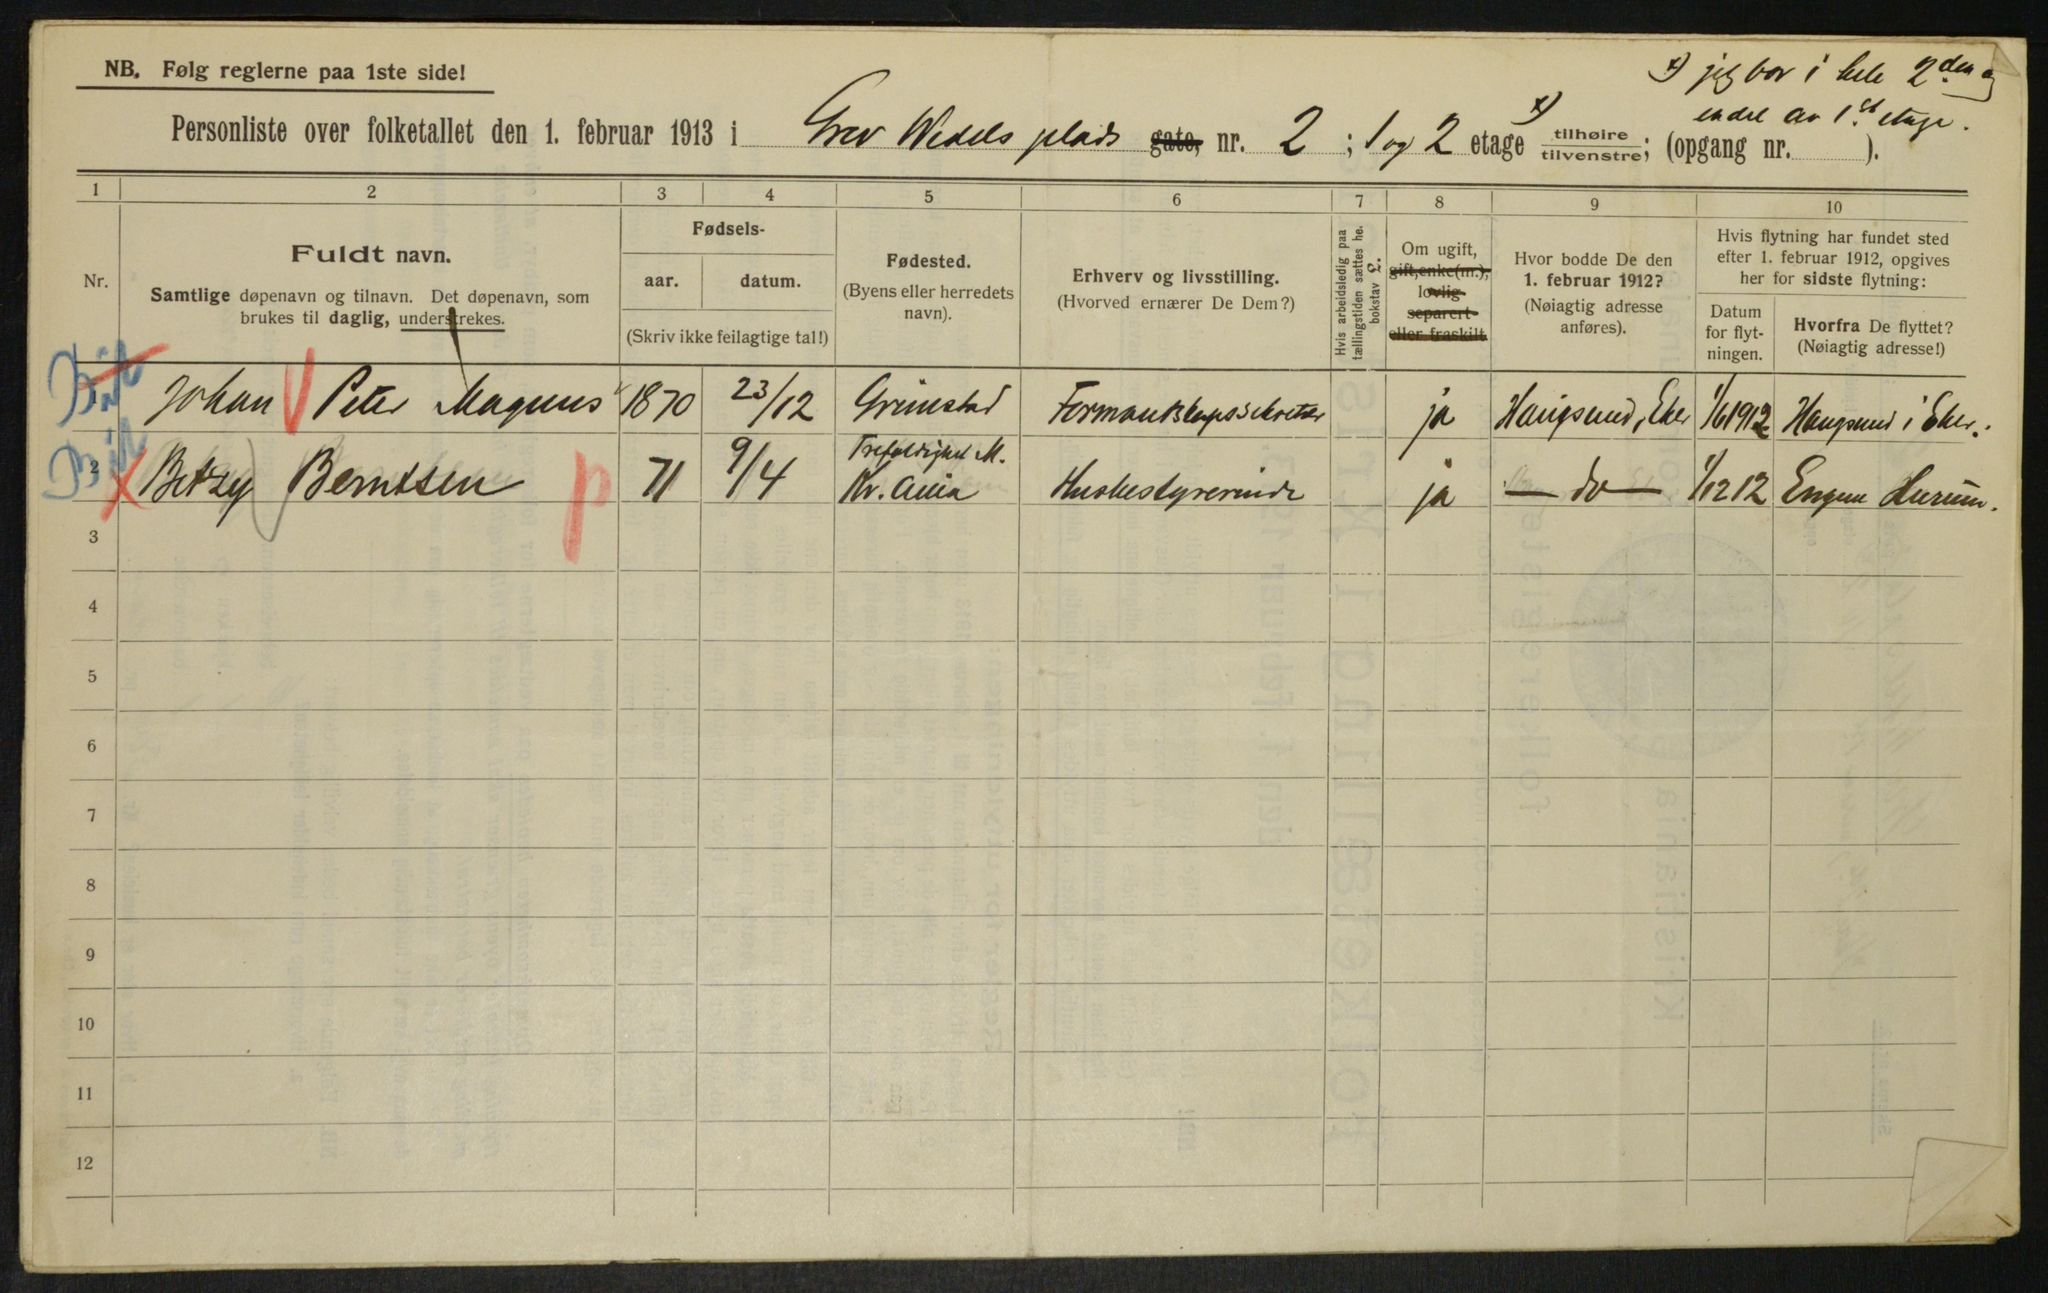 NB. Følg reglerne paa 1ste side!
x) jeg bor i hele 2den og
endel av 1st etage.
Personliste over folketallet den 1. februar 1913 i Grev Wedels plads gate, nr. 2 ; 1 og 2 etage x) tilhøire tilvenstre; (opgang nr. ).
1 2 3 4 5 6 7 8 9 10
Nr.
Fuldt navn.
Samtlige døpenavn og tilnavn. Det døpenavn, som
brukes til daglig, understrekes.
Fødsels-
aar. datum.
(Skriv ikke feilagtige tal!)
Fødested.
(Byens eller herredets
navn).
Erhverv og livsstilling.
(Hvorved ernærer De Dem?)
Hvis arbeidsledig paa
tællingstiden sættes he.
bokstav L.
Om ugift,
gift, enke(m.),
lovlig
separert
eller fraskilt
Hvor bodde De den
1. februar 1912?
(Nøiagtig adresse
anføres).
Hvis flytning har fundet sted
efter 1. februar 1912, opgives
her for sidste flytning:
Datum
for flyt-
ningen.
Hvorfra De flyttet?
(Nøiagtig adresse!)
1 Johan Peter Magnus 1870 23/12 Grimstad Formandskapssekretær ja Haugsund, Eker 1/6 1912 Haugsund i Eker.
2 Betzy Berntsen 71 9/4 Trefoldighet M. Kr.ania Husbestyrerinde ja — do — 1/12 12 Engene Hurum.
p
3
4
5
6
7
8
9
10
11
12